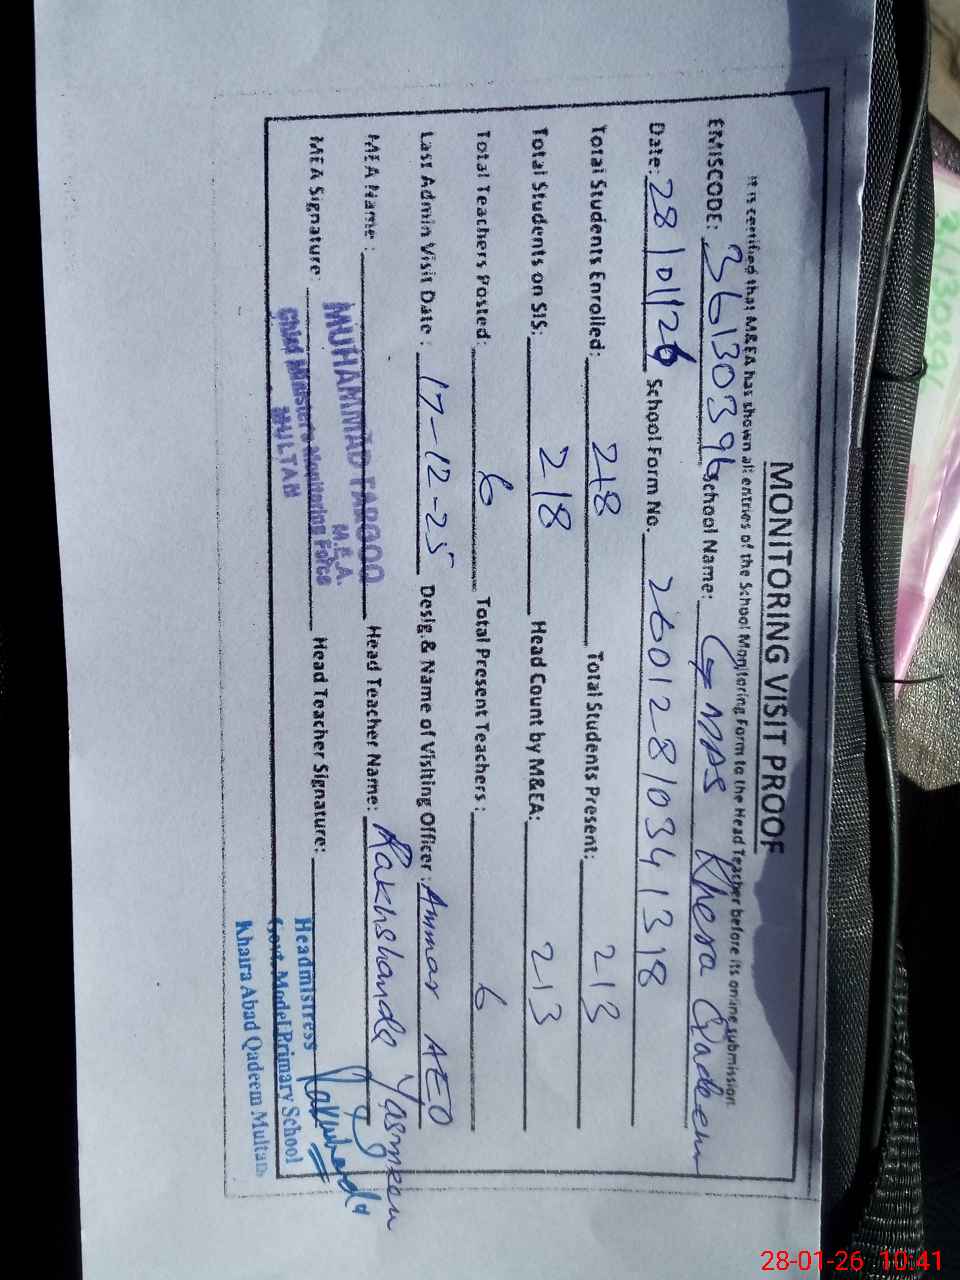 MONITORING VISIT PROOF
It is certified that M&EA has shown all entries of the School Monitoring Form to the Head Teacher before its online submission
EMISCODE: 36130396 School Name: GMPS Khera Qadeem
Date: 28/01/26 School Form No. 260128103413 18
Total Students Enrolled: 218 Total Students Present: 213
Total Students on SIS: 218 Head Count by M&EA: 213
Total Teachers Posted: 6 Total Present Teachers: 6
Last Admin Visit Date: 17-12-25 Desig.& Name of Visiting Officer: Ammar AEO
MEA Name: Head Teacher Name: Rakhshanda Yasmeen
MUHAMMAD FAROOQ
M.E.A.
MEA Signature: Head Teacher Signature:
Chief Minister's Monitoring Force
MULTAN
Headmistress
Govt. Model Primary School
Khaira Abad Qadeem Multan
28-01-26 10:41